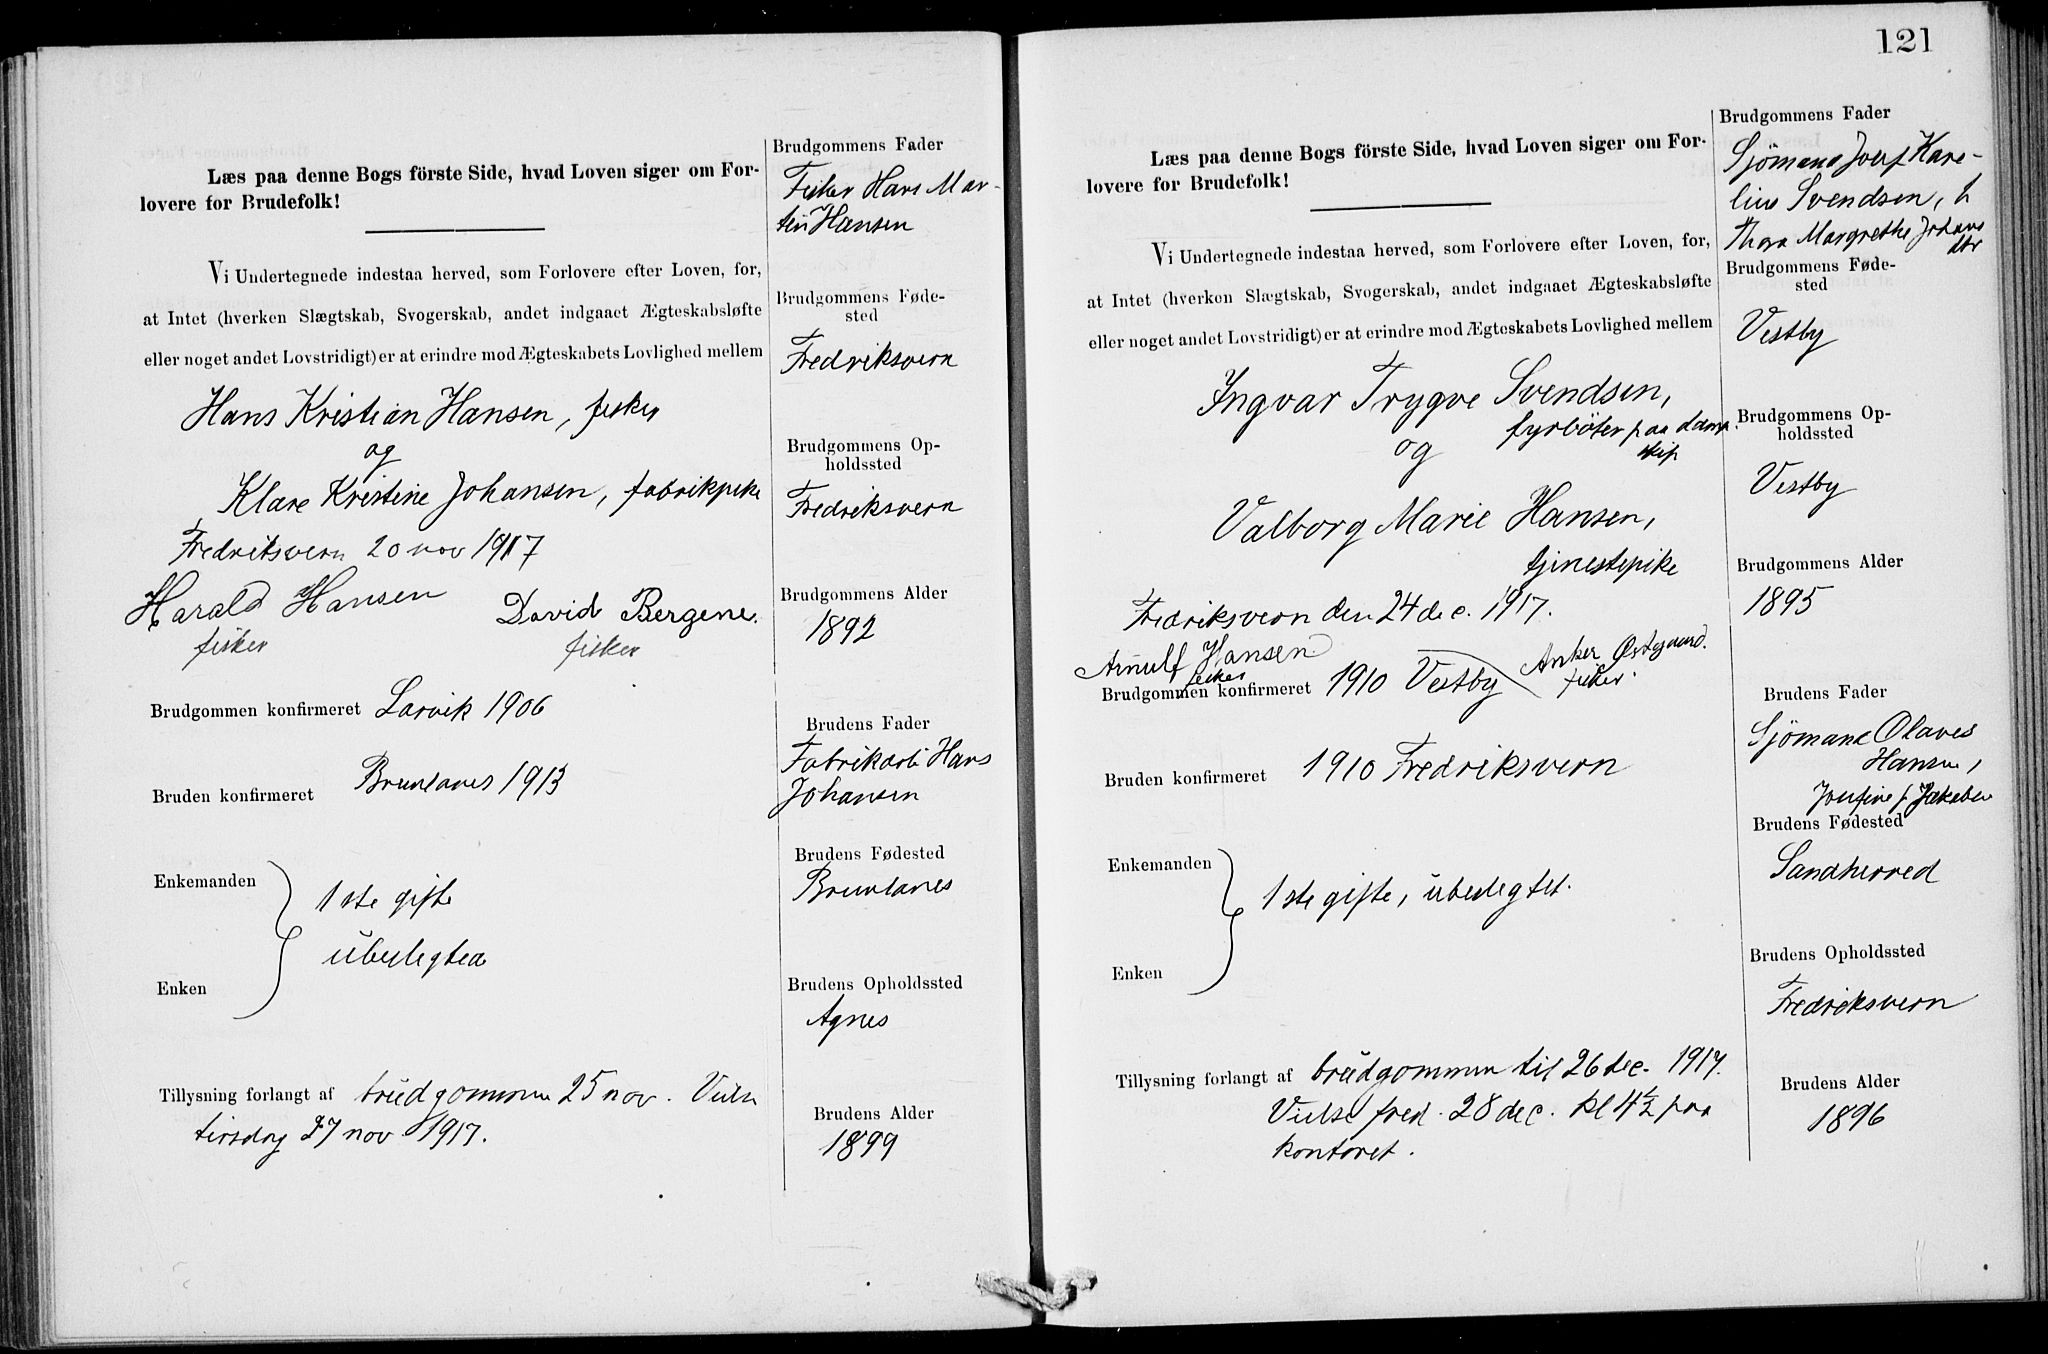 Læs paa denne Bogs förste Side, hvad Loven siger om For-
lovere for Brudefolk!
Vi Undertegnede indestaa herved, som Forlovere efter Loven, for,
at Intet (hverken Slægtskab, Svogerskab, andet indgaaet Ægteskabsløfte
eller noget andet Lovstridigt) er at erindre mod Ægteskabets Lovlighed mellem
Hans Kristian Hansen, fisker
og
Klara Kristine Johansen, fabrikpike
Fredriksvern 20 nov 1917
Harald Hansen David Bergene.
fisker fisker
Brudgommen konfirmeret Larvik 1906
Bruden konfirmeret Brunlanes 1913
Enkemanden
1ste gifte
ubeslegted
Enken
Tillysning forlangt af brudgommen 25 nov. Vielse
tirsdag 27 nov 1917.
Brudgommens Fader
Fisker Hans Mar-
tin Hansen
Brudgommens Føde-
sted
Fredriksvern
Brudgommens Op-
holdssted
Fredriksvern
Brudgommens Alder
1892
Brudens Fader
Fabrikarb. Hans
Johansen
Brudens Fødested
Brunlanes
Brudens Opholdssted
Agnes
Brudens Alder
1899
121
Læs paa denne Bogs förste Side, hvad Loven siger om For-
lovere for Brudefolk!
Vi Undertegnede indestaa herved, som Forlovere efter Loven, for,
at Intet (hverken Slægtskab, Svogerskab, andet indgaaet Ægteskabsløfte
eller noget andet Lovstridigt) er at erindre mod Ægteskabets Lovlighed mellem
Ingvar Trygve Svendsen,
fyrböter paa damp-
og skip
Valborg Marie Hansen,
tjenestepike
Fredriksvern den 24 dec. 1917.
Arnulf Hansen Anker Østgaard.
fisker fisker.
Brudgommen konfirmeret 1910 Vestby
Bruden konfirmeret 1910 Fredriksvern
Enkemanden
1ste gifte, ubeslegtet.
Enken
Tillysning forlangt af brudgommen til 26 dec. 1917.
Vielse fred. 28 dec. kl 4½ paa
kontoret.
Brudgommens Fader
Sjömand Josef Kare-
lius Svendsen,
Thora Margrethe Johans
dtr
Brudgommens Føde-
sted
Vestby
Brudgommens Op-
holdssted
Vestby
Brudgommens Alder
1895
Brudens Fader
Sjömand Olaves
Hansen,
Josefine f. Jakobsen
Brudens Fødested
Sandherred
Brudens Opholdssted
Fredriksvern
Brudens Alder
1896